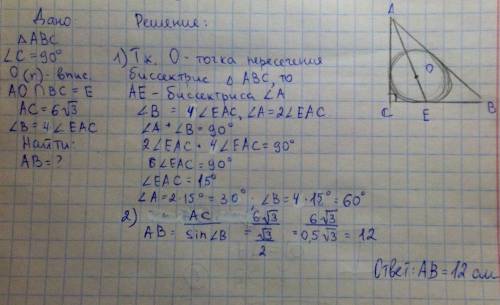 Дано
△ABC
∠C = 90°
O(r) - впис.
AO ∩ BC = E
AC = 6√3
∠B = 4∠EAC
Найти:
AB = ?
Решение:
1) Т.к. O - точка пересечения
биссектрис △ ABC, то
AE - биссектриса ∠A
∠B = 4∠EAC, ∠A = 2∠EAC
∠A + ∠B = 90°
2∠EAC + 4∠EAC = 90°
6∠EAC = 90°
∠EAC = 15°
∠A = 2·15° = 30°; ∠B = 4·15° = 60°
2) AB = AC / sin∠B = 6√3 / (√3/2) = 6√3 / 0,5√3 = 12
Ответ: AB = 12 см
A
O
C
E
B